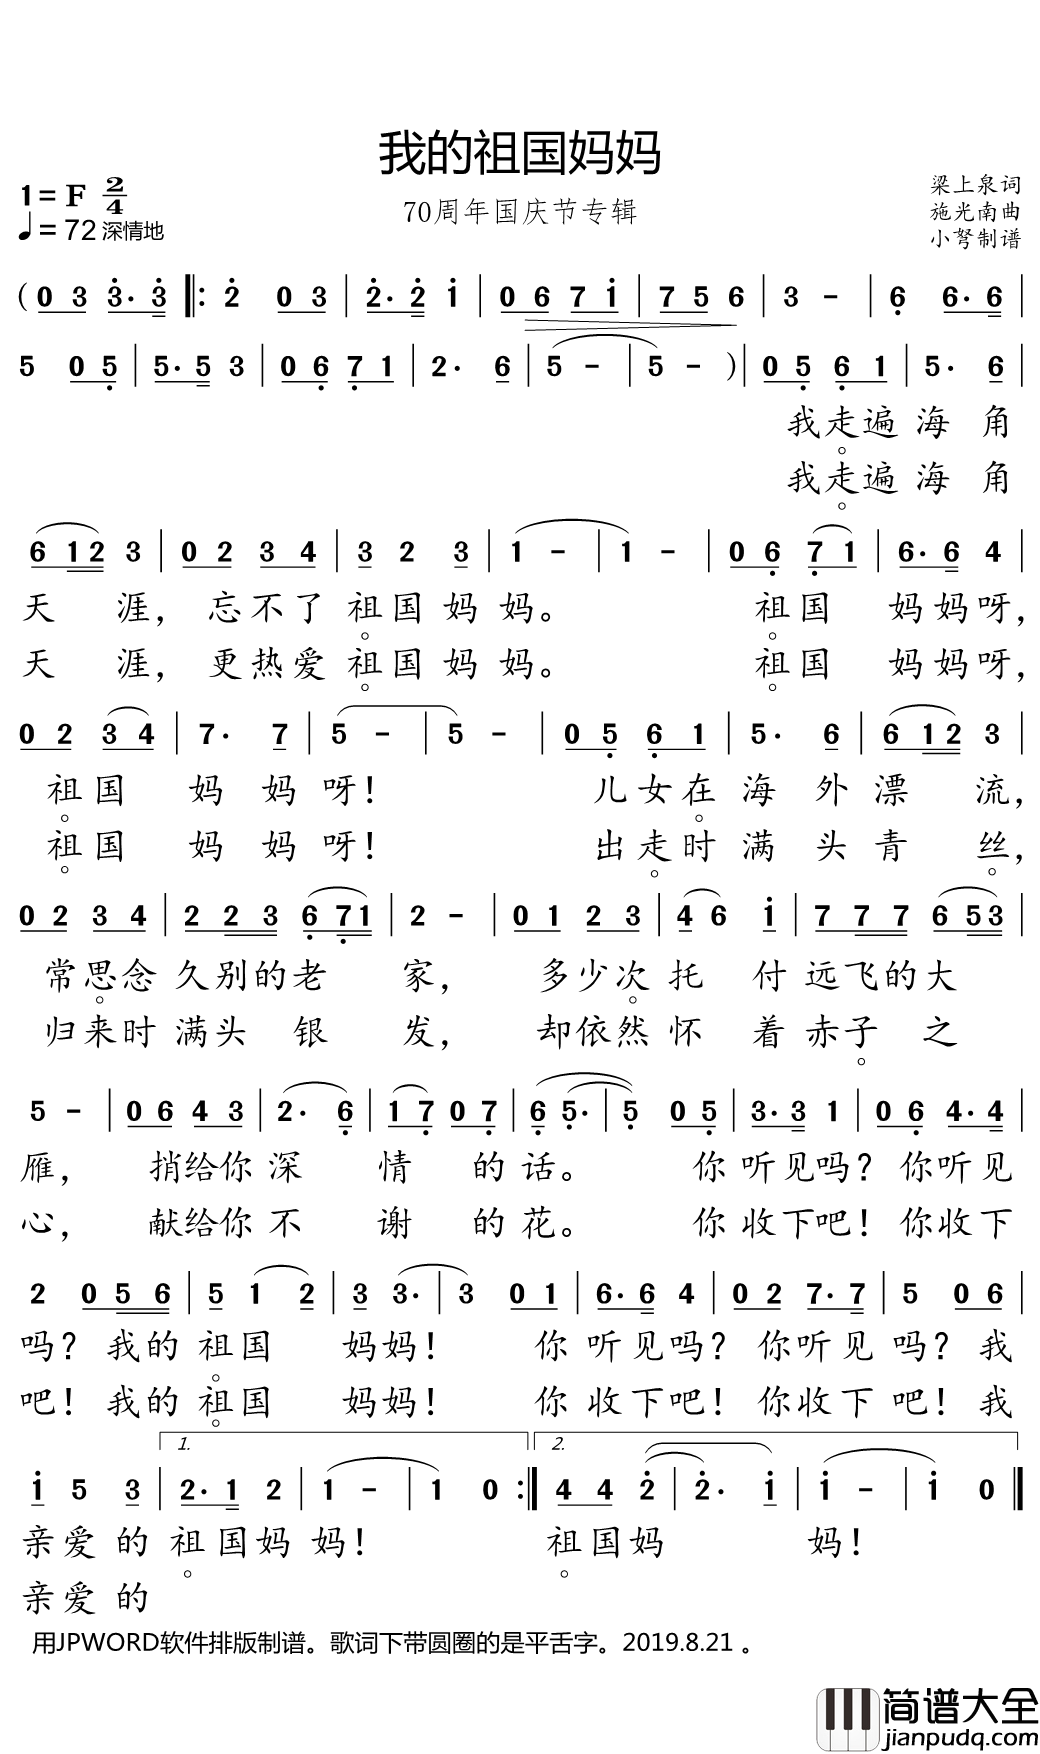 我的祖国妈妈
1=F 2/4
70周年国庆节专辑
梁上泉词
施光南曲
小弩制谱
♩=72 深情地
(0 3 3· 3 ‖: 2 0 3 | 2· 2 1 | 0 6 7 1 | 7 5 6 | 3 - | 6 6· 6 |
5 0 5 | 5· 5 3 | 0 6 7 1 | 2· 6 | 5 - | 5 - ) | 0 5 6 1 | 5· 6 |
我走遍 海 角
我走遍 海 角
6 1 2 3 | 0 2 3 4 | 3 2 3 | 1 - | 1 - | 0 6 7 1 | 6· 6 4 |
天 涯, 忘不了 祖国妈 妈。 祖国 妈妈呀,
天 涯, 更热爱 祖国妈 妈。 祖国 妈妈呀,
0 2 3 4 | 7· 7 | 5 - | 5 - | 0 5 6 1 | 5· 6 | 6 1 2 3 |
祖国 妈 妈 呀! 儿女在 海 外 漂 流,
祖国 妈 妈 呀! 出走时 满 头 青 丝,
0 2 3 4 | 2 2 3 6 7 1 | 2 - | 0 1 2 3 | 4 6 1 | 7 7 7 6 5 3 |
常思念 久别的老 家, 多少次 托 付 远飞的大
归来时 满头 银 发, 却依然 怀 着 赤子 之
5 - | 0 6 4 3 | 2· 6 | 1 7 0 7 | 6 5· | 5 0 5 | 3· 3 1 | 0 6 4· 4 |
雁, 捎给你 深 情 的 话。 你 听见吗? 你听见
心, 献给你 不 谢 的 花。 你 收下吧! 你收下
2 0 5 6 | 5 1 2 | 3 3· | 3 0 1 | 6· 6 4 | 0 2 7· 7 | 5 0 6 |
吗? 我的 祖国 妈妈! 你 听见吗? 你听见 吗? 我
吧! 我的 祖国 妈妈! 你 收下吧! 你收下 吧! 我
1. 2.
1 5 3 | 2· 1 2 | 1 - | 1 0 :‖ 4 4 2 | 2· 1 | 1 - | 1 0 ‖
亲爱 的 祖国妈 妈! 祖国妈 妈!
亲爱 的
用JPWORD软件排版制谱。歌词下带圆圈的是平舌字。2019.8.21 。
简谱大全
jianpudq.com